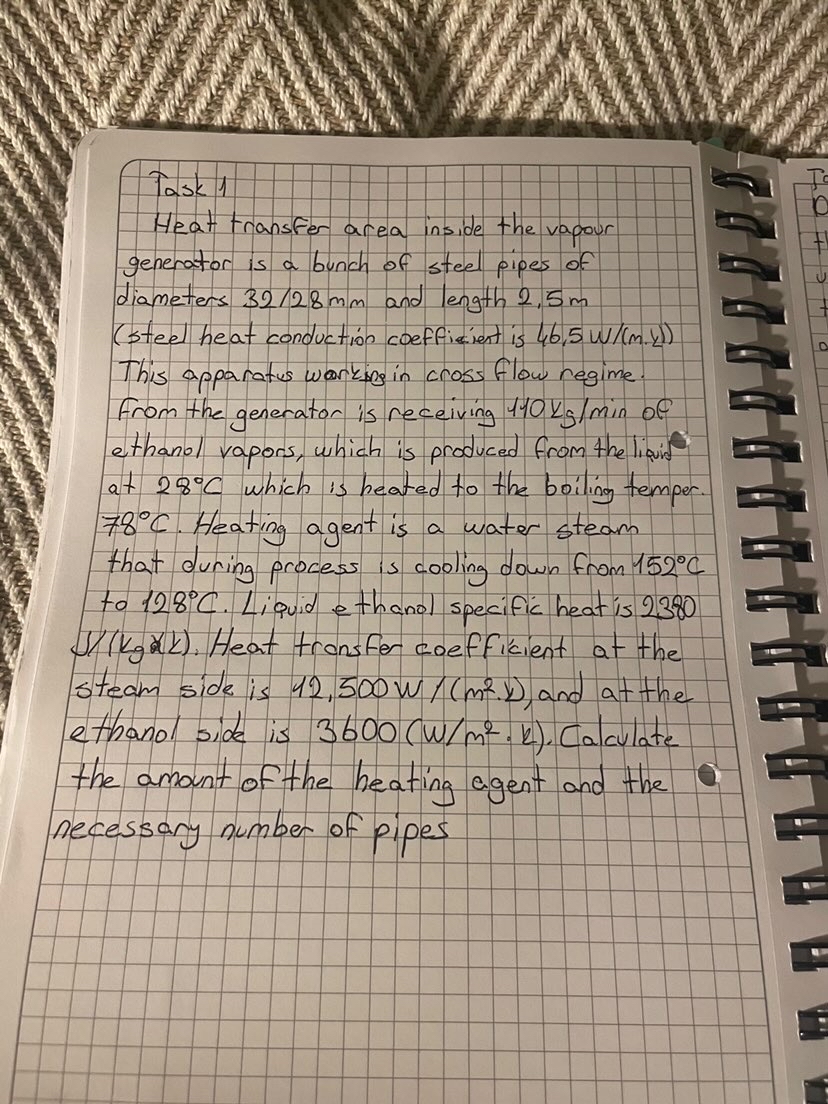 Task 1
Heat transfer area inside the vapour
generator is a bunch of steel pipes of
diameters 32/28mm and length 2,5m
(steel heat conduction coefficient is 46,5 W/(m.K))
This apparatus working in cross flow regime.
From the generator is receiving 110 kg/min of
ethanol vapors, which is produced from the liquid
at 28°C which is heated to the boiling temper.
78°C. Heating agent is a water steam
that during process is cooling down from 152°C
to 128°C. Liquid ethanol specific heat is 2380
J/(kg×K). Heat transfer coefficient at the
steam side is 12,500 W/(m².K), and at the
ethanol side is 3600 (W/m².K). Calculate
the amount of the heating agent and the
necessary number of pipes